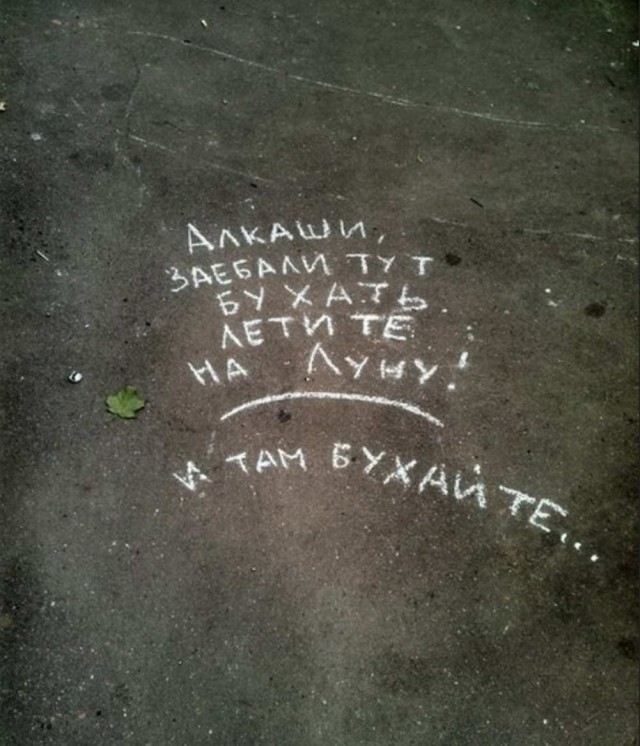 Алкаши,
ЗАЕБАЛИ ТУТ
БУХАТЬ.
ЛЕТИТЕ
НА ЛУНУ!
И ТАМ БУХАЙТЕ...